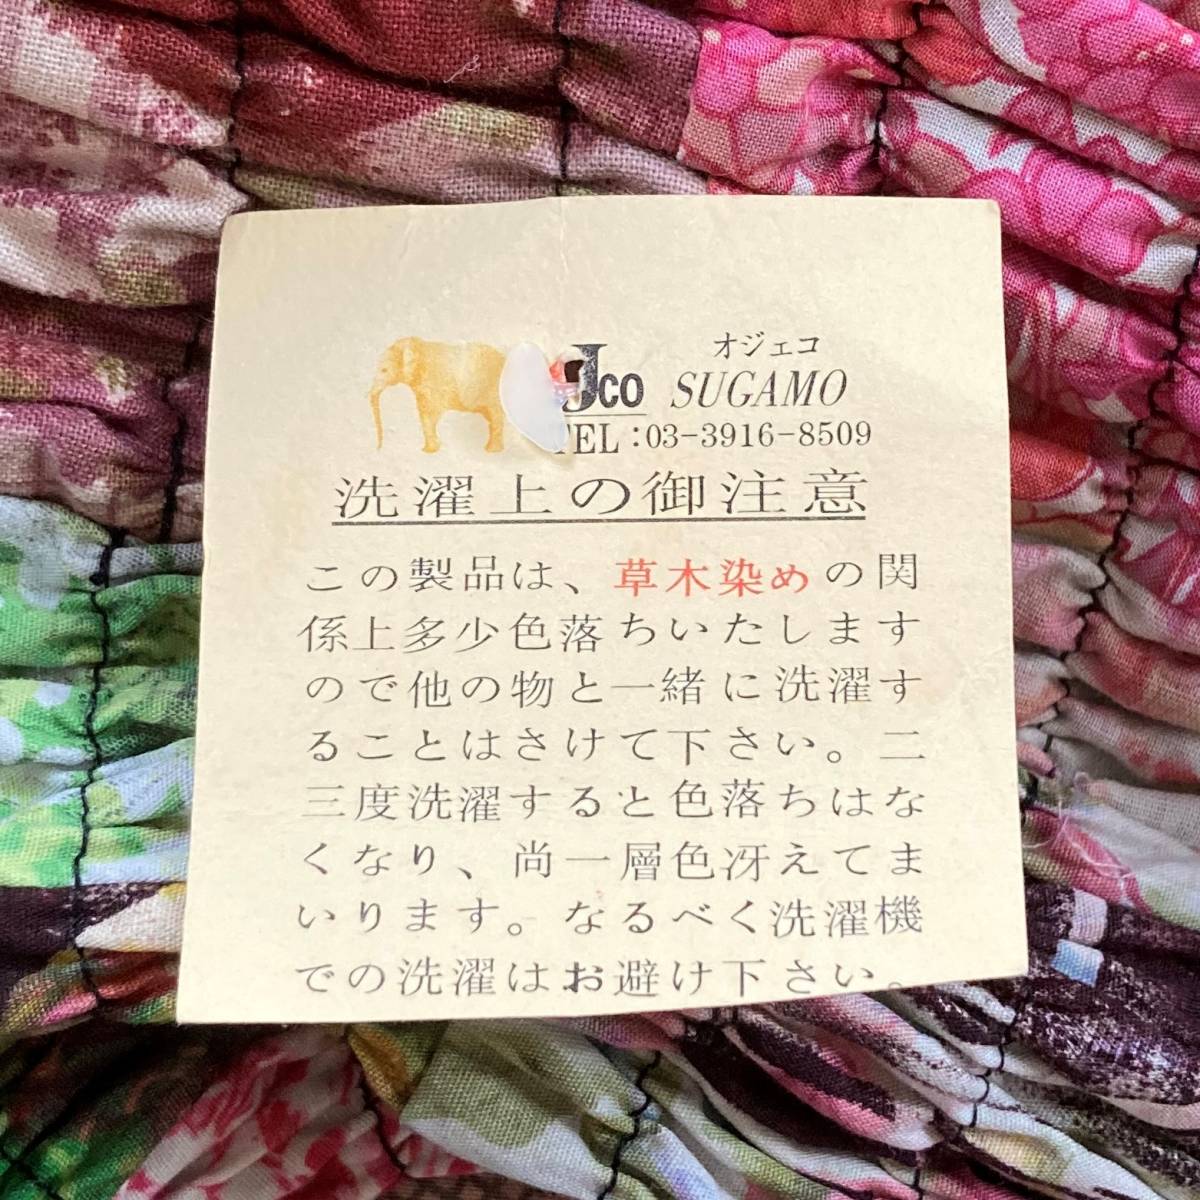 オジェコ
Jco SUGAMO
TEL:03-3916-8509
洗濯上の御注意
この製品は、草木染めの関
係上多少色落ちいたします
ので他の物と一緒に洗濯す
ることはさけて下さい。二
三度洗濯すると色落ちはな
くなり、尚一層色冴えてま
いります。なるべく洗濯機
での洗濯はお避け下さい。